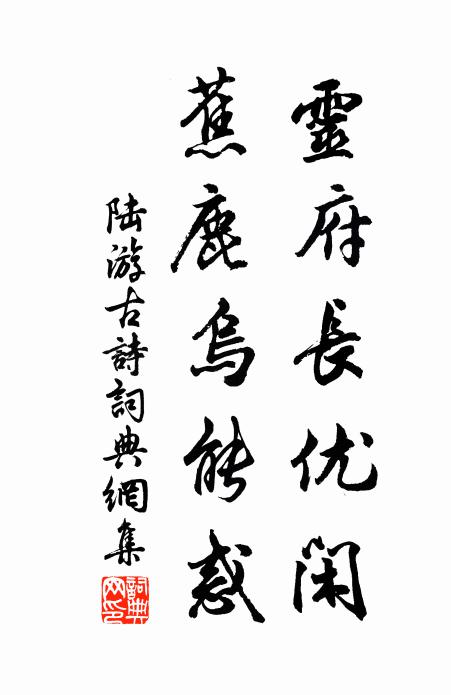 靈府長优閑
蕉鹿烏能惑
陆游古詩詞典網集